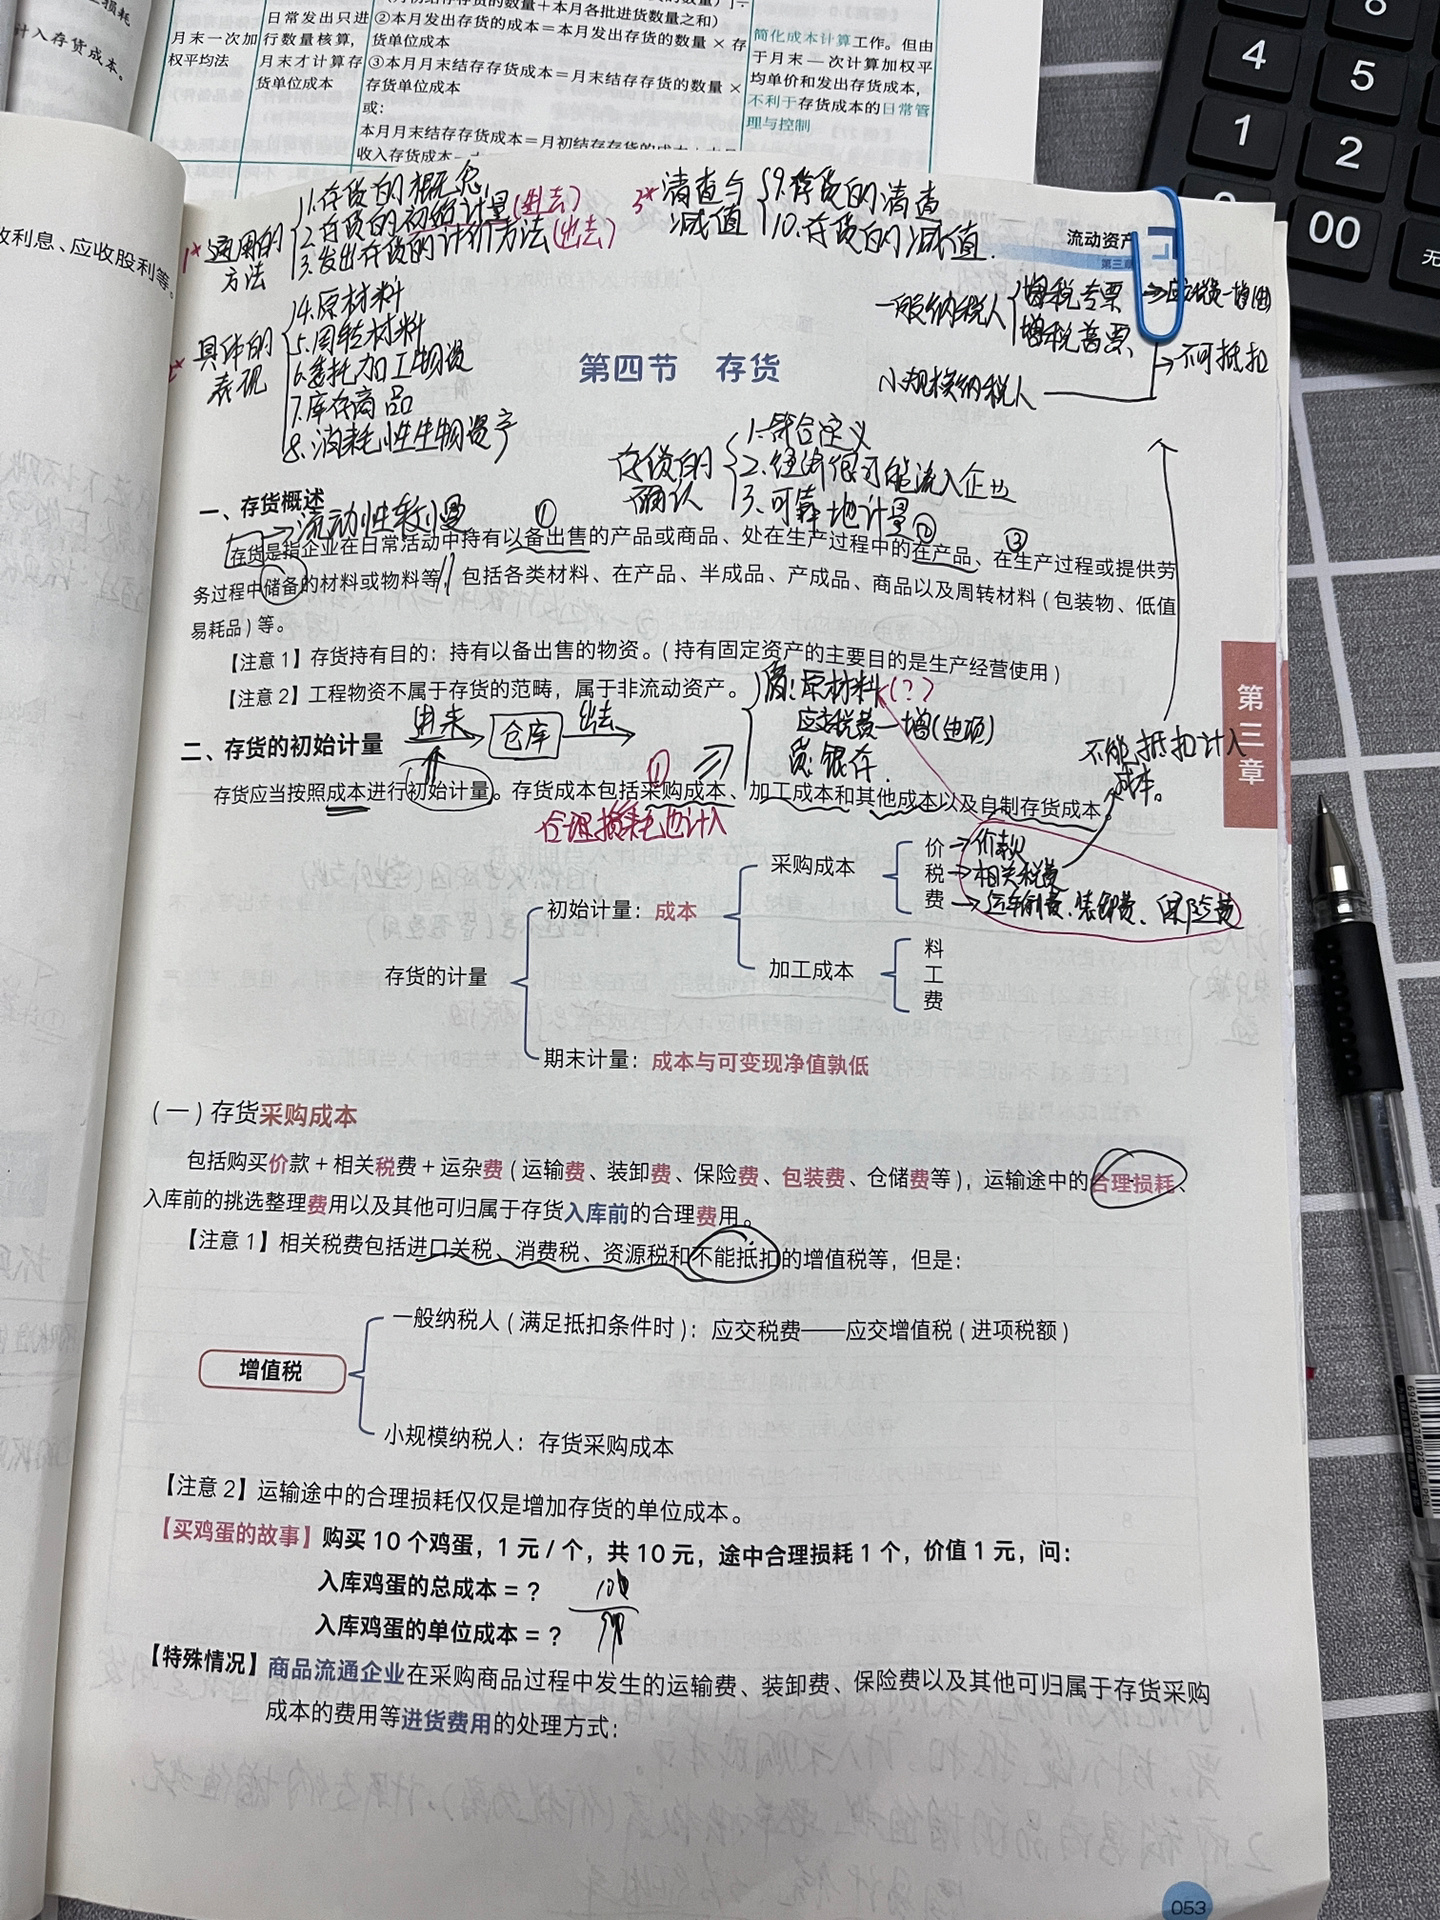 损耗
计入存货成本。
月末一次加权平均法
日常发出只进行数量核算，月末才计算存货单位成本
②本月发出存货的成本＝本月发出存货的数量×存货单位成本
③本月月末结存存货成本＝月末结存存货的数量×存货单位成本
或：
本月月末结存存货成本＝月初结存存货的成本＋本月
收入存货成本
简化成本计算工作。但由于月末一次计算加权平均单价和发出存货成本，不利于存货成本的日常管理与控制
4
5
1
2
00
收利息、应收股利等。
1* 通用的方法
1.存货的概念
2.存货的初始计量(进去)
3.发出存货的计价方法(出去)
3* 清查与减值
9.存货的清查
10.存货的减值.
流动资产
第三章
2* 具体的表现
4.原材料
5.周转材料
6.委托加工物资
7.库存商品
8.消耗性生物资产
一般纳税人
增税专票→应交税费一增(进)
增税普票
小规模纳税人
→不可抵扣
第四节 存货
存货的确认
1.符合定义
2.经济很可能流入企业
3.可靠地计量
一、存货概述
→流动性较慢
①
②
③
存货是指企业在日常活动中持有以备出售的产品或商品、处在生产过程中的在产品、在生产过程或提供劳
务过程中储备的材料或物料等，包括各类材料、在产品、半成品、产成品、商品以及周转材料(包装物、低值
易耗品)等。
【注意1】存货持有目的：持有以备出售的物资。(持有固定资产的主要目的是生产经营使用)
【注意2】工程物资不属于存货的范畴，属于非流动资产。
借:原材料(?)
应交税费一增(进项)
贷:银存.
进来
仓库
出去
二、存货的初始计量
不能抵扣计入成本。
存货应当按照成本进行初始计量。存货成本包括采购成本、加工成本和其他成本以及自制存货成本。
①
合理损耗也计入
存货的计量
初始计量：成本
采购成本
价→价款
税→相关税费
费→运输费、装卸费、保险费
加工成本
料
工
费
期末计量：成本与可变现净值孰低
第三章
(一)存货采购成本
包括购买价款＋相关税费＋运杂费(运输费、装卸费、保险费、包装费、仓储费等)，运输途中的合理损耗、
入库前的挑选整理费用以及其他可归属于存货入库前的合理费用。
【注意1】相关税费包括进口关税、消费税、资源税和不能抵扣的增值税等，但是：
增值税
一般纳税人(满足抵扣条件时)：应交税费——应交增值税(进项税额)
小规模纳税人：存货采购成本
【注意2】运输途中的合理损耗仅仅是增加存货的单位成本。
【买鸡蛋的故事】购买10个鸡蛋，1元/个，共10元，途中合理损耗1个，价值1元，问：
入库鸡蛋的总成本＝？
入库鸡蛋的单位成本＝？
【特殊情况】商品流通企业在采购商品过程中发生的运输费、装卸费、保险费以及其他可归属于存货采购
成本的费用等进货费用的处理方式：
053
6947593718022 GEL PEN